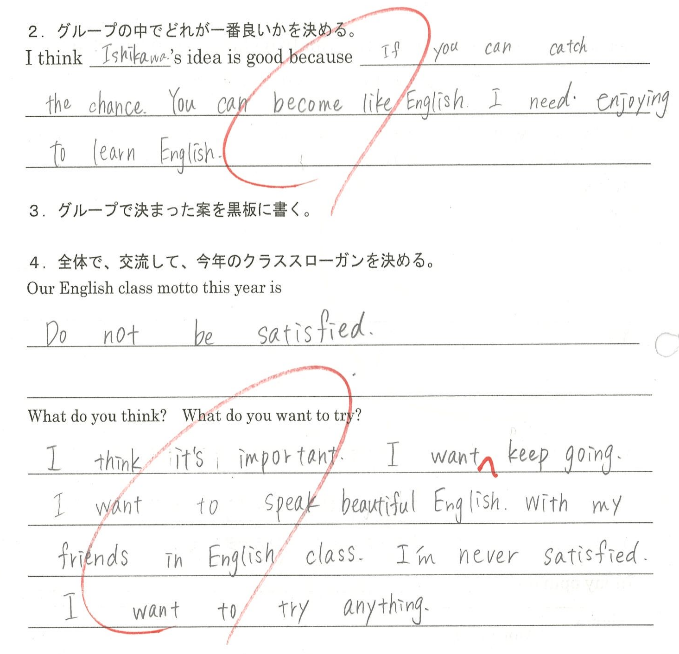 ２．グループの中でどれが一番良いかを決める。
I think Ishikawa's idea is good because If you can catch
the chance. You can become like English. I need enjoying
to learn English.
３．グループで決まった案を黒板に書く。
４．全体で、交流して、今年のクラススローガンを決める。
Our English class motto this year is
Do not be satisfied.
What do you think? What do you want to try?
I think it's important. I want keep going.
I want to speak beautiful English. With my
friends in English class. I'm never satisfied.
I want to try anything.